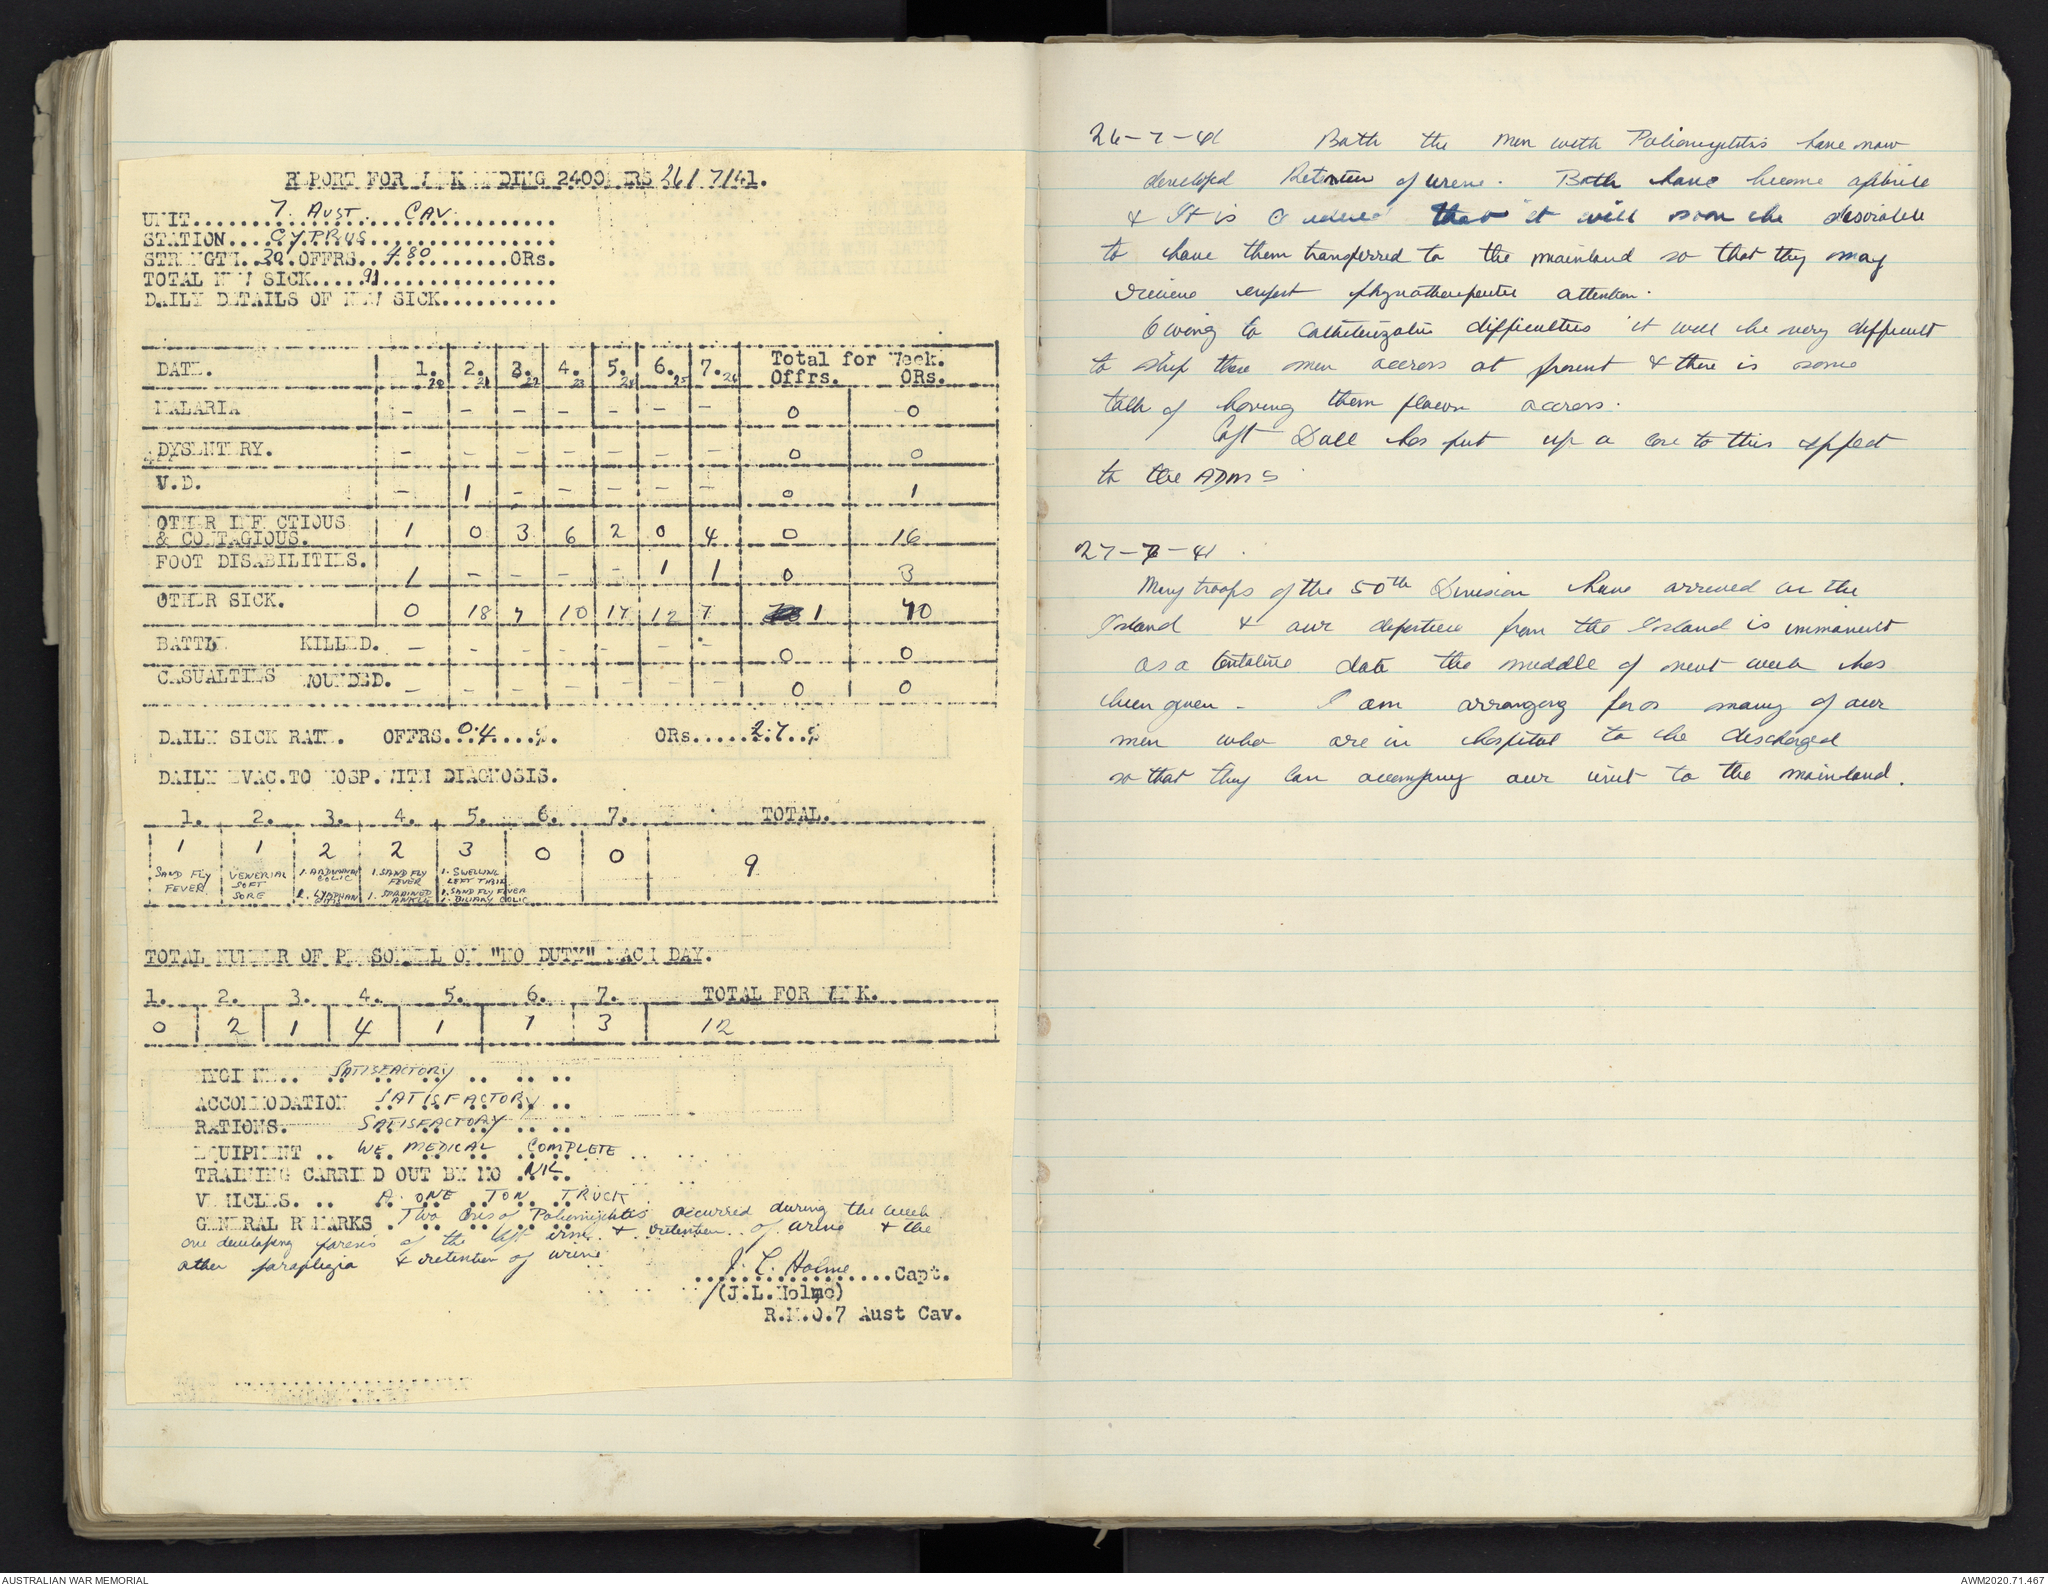 REPORT FOR WEEK ENDING 2400 HRS 26/7/41.
UNIT....7. AUST. CAV............
STATION....CYPRUS...............
STRENGTH..30.OFFRS..480.........ORs.
TOTAL NEW SICK.....91...............
DAILY DETAILS OF NEW SICK..........
DATE. 1.20 2.21 3.22 4.23 5.24 6.25 7.26 Total for Week. Offrs. ORs.
MALARIA - - - - - - - 0 0
DYSENTERY. - - - - - - - 0 0
V.D. - 1 - - - - - 0 1
OTHER INFECTIOUS
& CONTAGIOUS. 1 0 3 6 2 0 4 0 16
FOOT DISABILITIES. 1 - - - - 1 1 0 3
OTHER SICK. 0 18 7 10 17 12 7 1 70
BATTLE KILLED. - - - - - - - 0 0
CASUALTIES WOUNDED. - - - - - - - 0 0
DAILY SICK RATE. OFFRS..0.4....%. ORs.....2.7..%
DAILY EVAC.TO HOSP.WITH DIAGNOSIS.
1. 2. 3. 4. 5. 6. 7. TOTAL.
1 1 2 2 3 0 0 9
SAND FLY FEVER
VENERIAL SOFT SORE
1. ABDOMINAL COLIC
1. SAND FLY FEVER 1. SPRAINED ANKLE
1. SWELLING LEFT TIBIA 1. SAND FLY FEVER 1. BILIARY COLIC
TOTAL NUMBER OF PERSONNEL ON "NO DUTY" EACH DAY.
1. 2. 3. 4. 5. 6. 7. TOTAL FOR WEEK.
0 2 1 4 1 1 3 12
HYGIENE.. SATISFACTORY
ACCOMMODATION SATISFACTORY
RATIONS. SATISFACTORY
EQUIPMENT .. WE. MEDICAL COMPLETE
TRAINING CARRIED OUT BY MO NIL
VEHICLES. .. A ONE TON TRUCK
GENERAL REMARKS . Two Cases of Poliomyelitis occurred during the week
one developing paresis of the left arm & retention of urine & the
other paraplegia & retention of urine
J. L. Holme
................Capt.
(J.L.Holme)
R.M.O.7 Aust Cav.
26-7-41 Both the men with Poliomyelitis have now
developed Retention of urine. Both have become afebrile
& It is Considered that it will soon be desirable
to have them transferred to the mainland so that they may
recieve expert physiotherapeutic attention.
Owing to Catheterization difficulties it will be very difficult
to ship these men accross at present & there is some
talk of having them flown accross.
Capt Dall has put up a case to this effect
to the ADMS
27-7-41.
Many troops of the 50th Division have arrived on the
Island & our departure from the Island is immanent
as a tentative date the middle of next week has
been given - I am arranging for as many of our
men who are in hospital to be discharged
so that they can accompany our unit to the mainland.
AUSTRALIAN WAR MEMORIAL
AWM2020.71.467